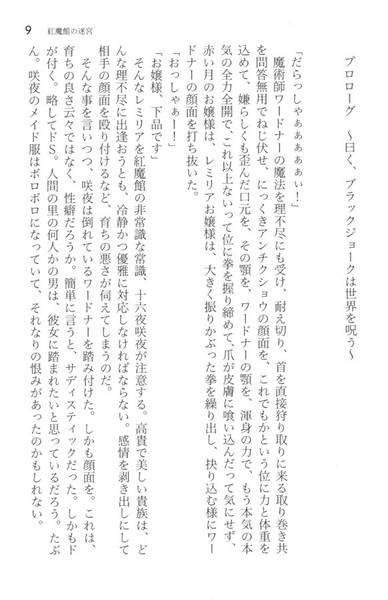 9 紅魔館の迷宮
プロローグ ～曰く、ブラックジョークは世界を呪う～
「だらっしゃぁぁぁぁぁぃ！」
魔術師ワードナーの魔法を理不尽にも受け、耐え切り、首を直接狩り取りに来る取り巻き共
を問答無用でねじ伏せ、にっくきアンチクショウの顔面を、これでもかという位に力と体重を
込めて、嫌らしくも歪んだ口元を、その顎を、ワードナーの顎を、渾身の力で、もう気の本
気の全力全開で、これ以上ないって位に拳を握り締めて、爪が皮膚に喰い込んだって気にせず、
赤い月のお嬢様は、レミリアお嬢様は、大きく振りかぶった拳を繰り出し、抉り込む様にワー
ドナーの顔面を打ち抜いた。
「おっしゃぁー！」
「お嬢様、下品です」
そんなレミリアを紅魔館の非常識な常識、十六夜咲夜が注意する。高貴で美しい貴族は、ど
んな理不尽に出逢おうとも、冷静かつ優雅に対応しなければならない。感情を剥き出しにして
相手の顔面を殴り付けるなど、育ちの悪さが伺えてしまうのだ。
そんな事を言いつつ、咲夜は倒れているワードナーを踏み付けた。しかも顔面を。これは、
育ちの良さ云々ではなく、性癖だろうか。簡単に言うと、サディスティックだった。しかもド
が付く。略してドS。人間の里の何人かの男は、彼女に踏まれたいと思っているだろう。たぶ
ん。咲夜のメイド服はボロボロになっていて、それなりの恨みがあったのかもしれない。